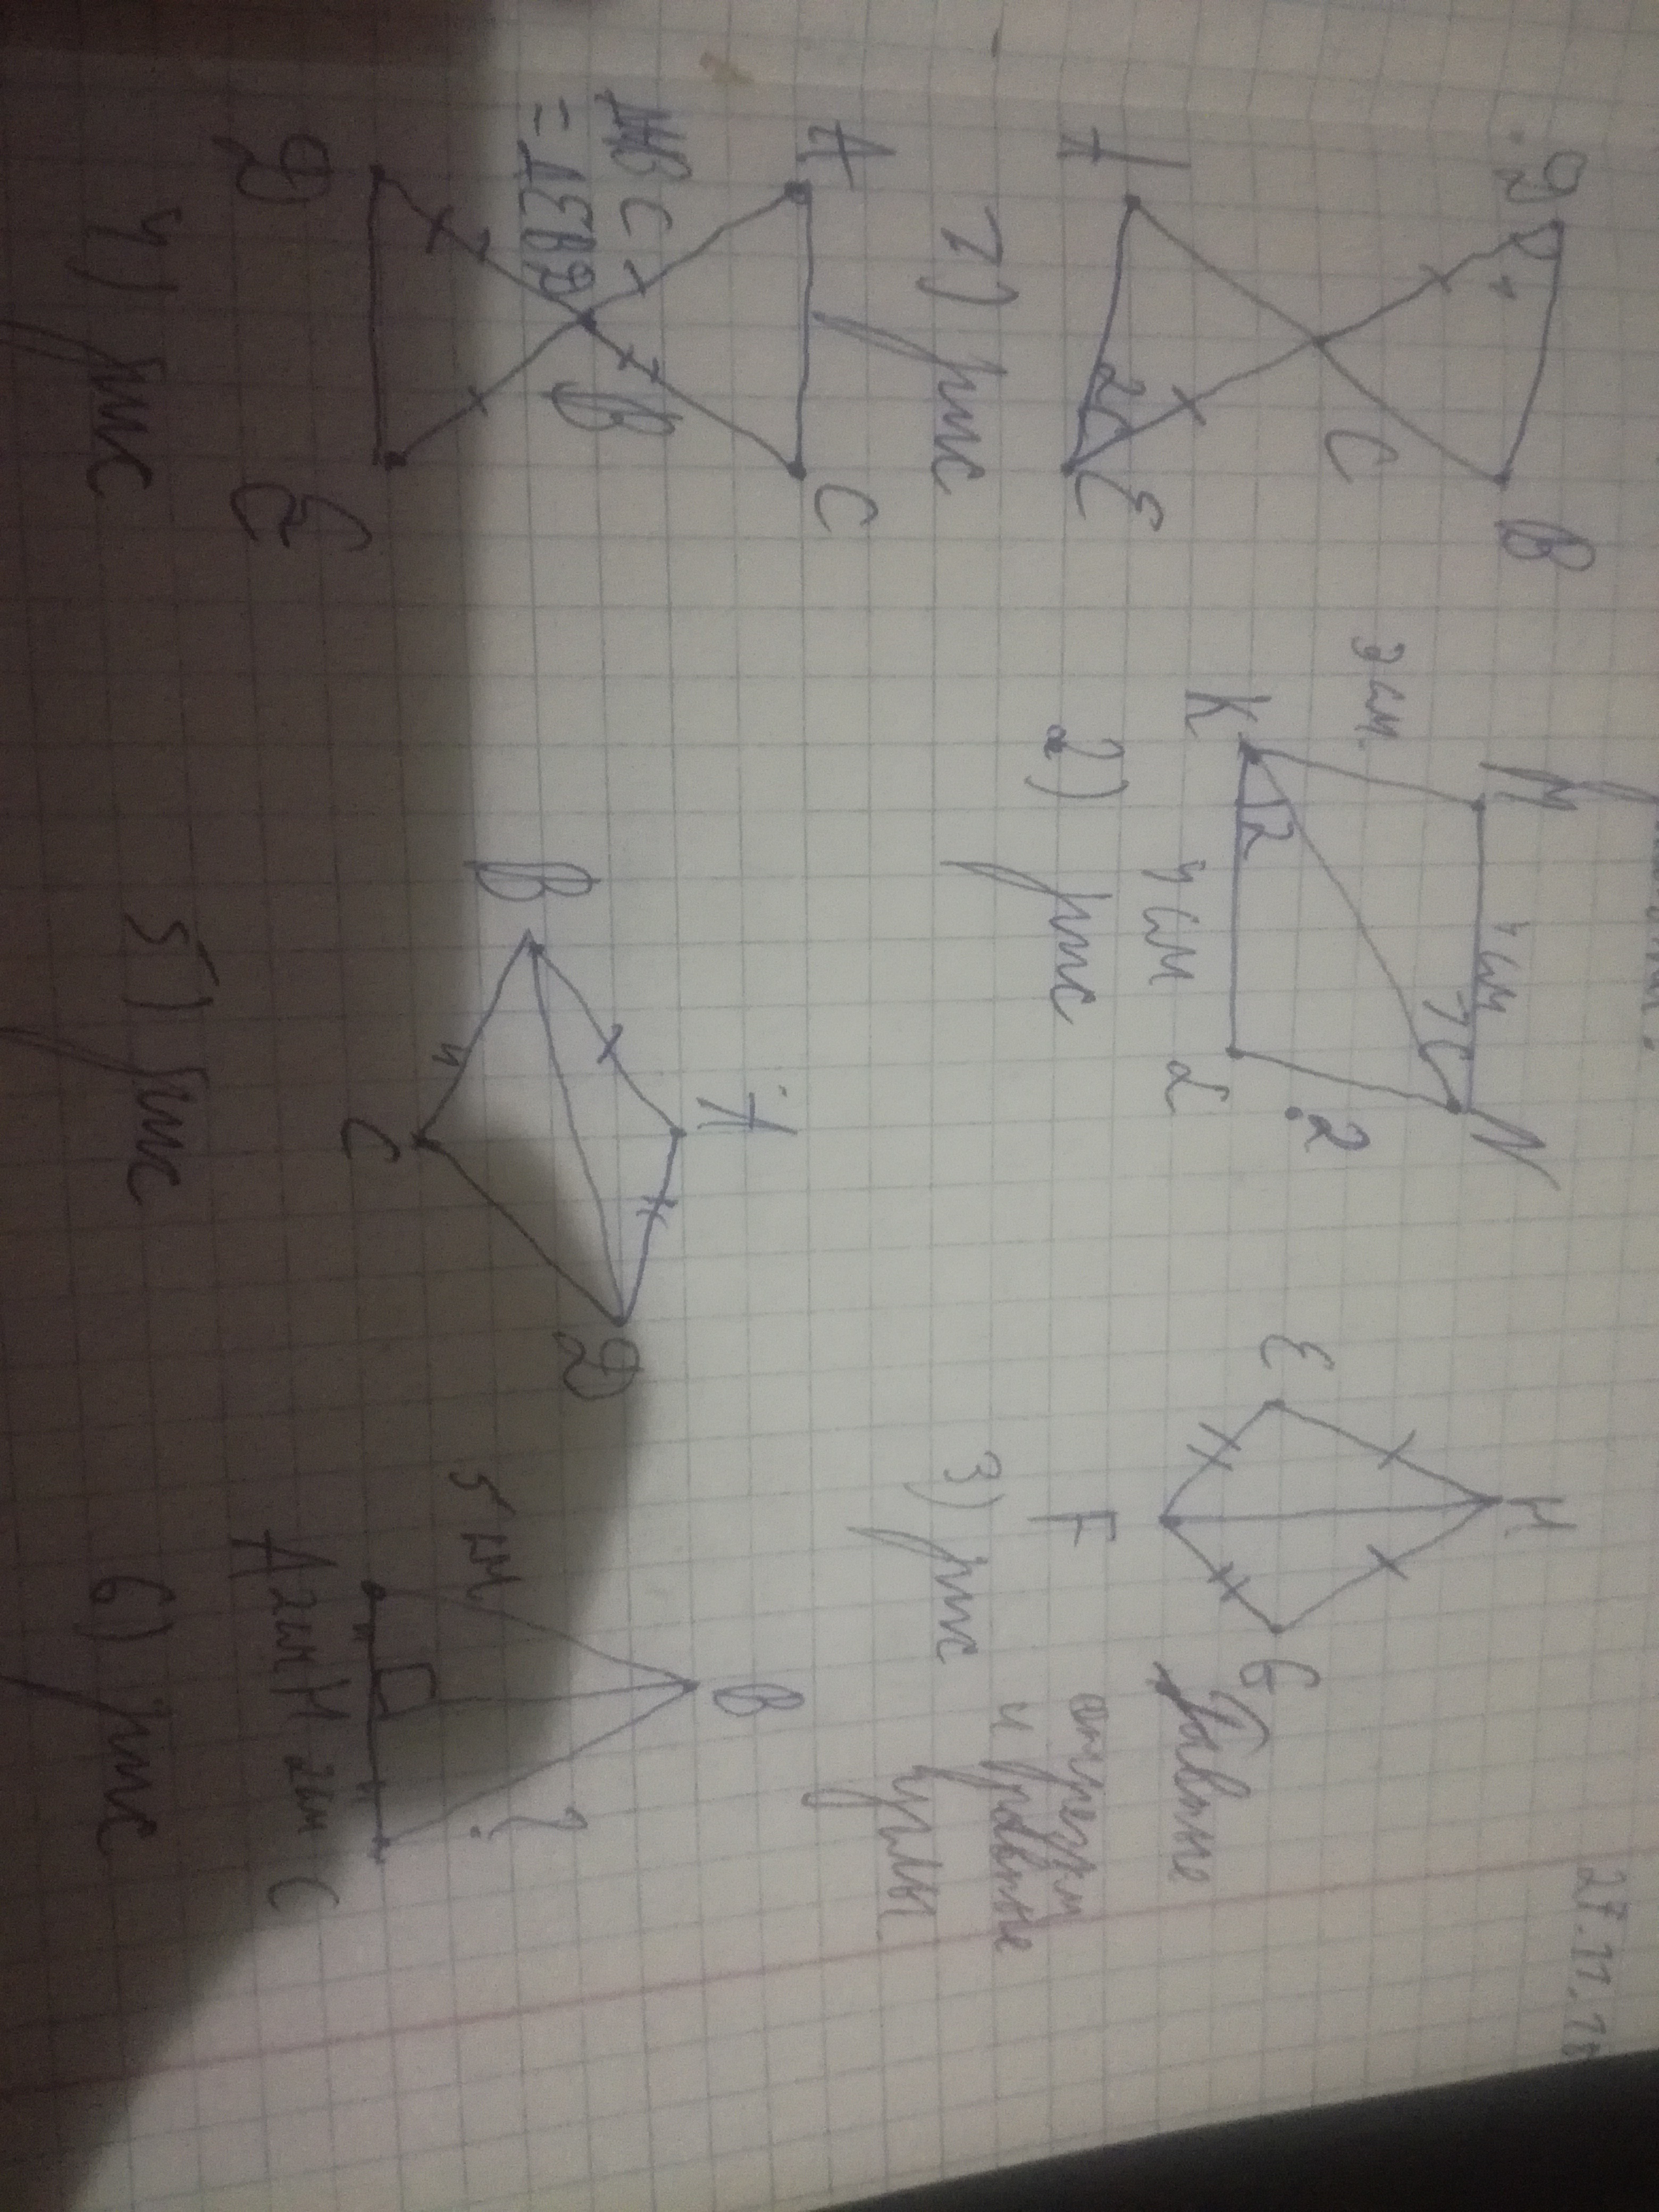 27.11.18
D
1
B
C
A
2
E
1) рис
M
4 см
N
3 см.
1
2
K
4 см
L
?
2) рис
M
E
G
F
3) рис
равные
отрезки
и равные
углы
A
C
ΔABC
= ΔEBD
B
D
E
4) рис
A
B
D
C
5) рис
B
5 см
?
A 2см H 2см C
6) рис